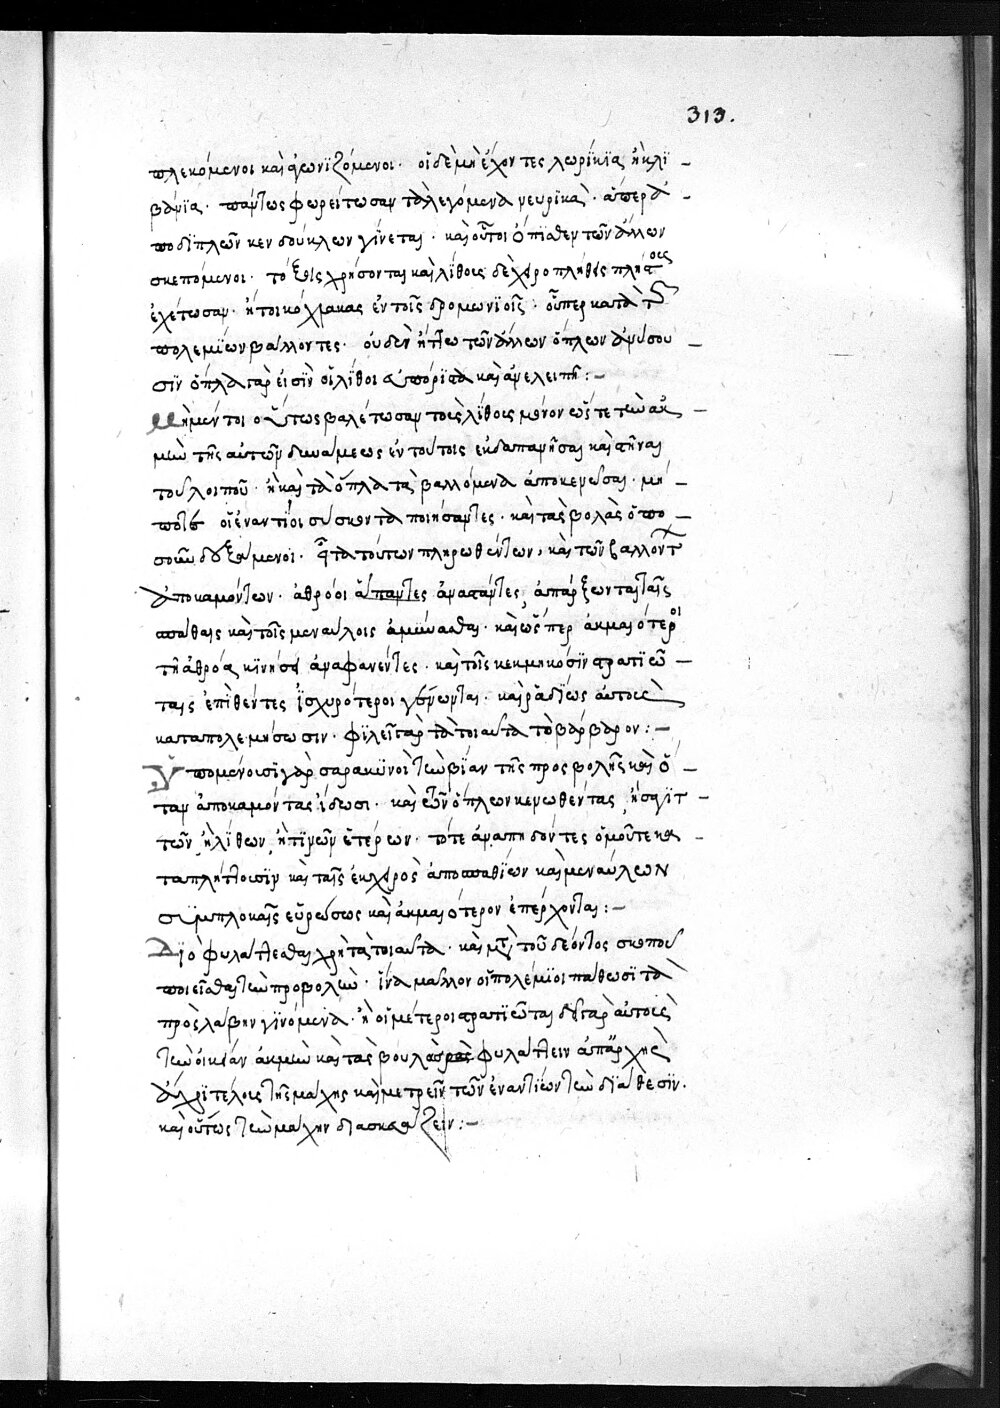 313.
πλεκόμενοι καὶ ἀγωνϊζόμενοι · οἱ δὲ μὴ ἔχοντες λωρίκϊα ἢ κλϊ
βάνϊα · πάντως φορείτωσαν τὰ λεγόμενα νευρϊκὰ · ἅπερ ἀ
πο δϊπλῶν κενδούκλων γίνεται · καὶ οὗτοι ὄπϊσθεν τῶν ἄλλων
σκεπόμενοι · τόξοις χρήσονται καὶ λίθοις δὲ χειροπληθεῖς πλείστους
ἐχέτωσαν · ἤτοι κόχλακας ἐν τοῖς δρομωνϊοις · οὕσπερ κατὰ τῶν
πολεμίων βάλλοντες · οὐδὲν ἧττω τῶν ἄλλων ὅπλων ἀνύσου
σϊν ὅπλα γὰρ εἰσὶν οἱ λίθοι εὐπόριστα καὶ ἀνελειπῆ :-
Μὴ μέντοι οὕτως βαλέτωσαν τοὺς λίθους μόνον ὥστε τὴν ἀκ
μὴν τῆς αὐτῶν δυνάμεως ἐν τούτοις ἐκδαπανῆσαι καὶ στῆναι
τοῦ λοιποῦ · ἢ καὶ τὰ ὅπλα τὰ βαλλόμενα ἀποκενῶσαι · μή
ποτε οἱ ἐναντίοι συσκουτα ποιήσαντες · καὶ τὰς βολὰς ὁπο
σοῦν δεξάμενοι · εἶτα τούτων πληρωθέντων, καὶ τῶν βαλλόντων
ἀποκαμόντων · ἀθρόοι ἅπαντες ἀναστάντες, ἀπάρξωνται ταῖς
σπάθαις καὶ τοῖς μεναύλοις ἀμύνασθαι · καὶ ὥσπερ ἀκμαιότεροι
τῆ ἀθρόα κϊνήσει ἀναφανέντες · καὶ τοῖς κεκμηκόσϊν στρατϊώ
ταις ἐπϊθέντες ἰσχυρότεροι γένωνται · καὶ ῥαδίως αὐτοὺς
καταπολεμήσωσιν · φϊλεῖ γὰρ τὰ τοιαῦτα τὸ βάρβαρον :-
Ὑπομένουσϊ γὰρ σαρακϊνοὶ τὴν βίαν τῆς προσβολῆς καὶ ὅ
ταν ἀποκαμόντας ἴδωσι · καὶ τῶν ὅπλων κενωθέντας, ἢ σαϊτ
τῶν ἢ λίθων, ἢ τϊνῶν ἑτέρων · τότε ἀναπηδόντες ὁμοῦ τε κα
ταπλήττουσϊν καὶ ταῖς ἐκ χειρὸς ἀπὸ σπαθϊων καὶ μεναύλων
συμπλοκαῖς εὐρώστως καὶ ἀκμαιότερον ἐπέρχονται :-
Διὸ φυλάττεσθαι χρὴ τὰ τοιαῦτα · καὶ μετὰ τοῦ δέοντος σκοποῦ
ποιεῖσθαι τὴν προβολὴν · ἵνα μᾶλλον οἱ πολέμϊοι πάθωσϊ τὰ
πρὸς λάβην γϊνόμενα · ἢ οἱ μέτεροι στρατϊῶται δεῖ γὰρ αὐτοὺς
τὴν οἰκείαν ἀκμὴν καὶ τὰς βουλὰς φυλάττειν ἀπ᾽ ἀρχῆς
ἄχρϊ τέλους τῆς μάχης καὶ μετρεῖν τῶν ἐναντίων τὴν διάθεσϊν.
καὶ οὕτως τὴν μάχην διασκευάζειν :-